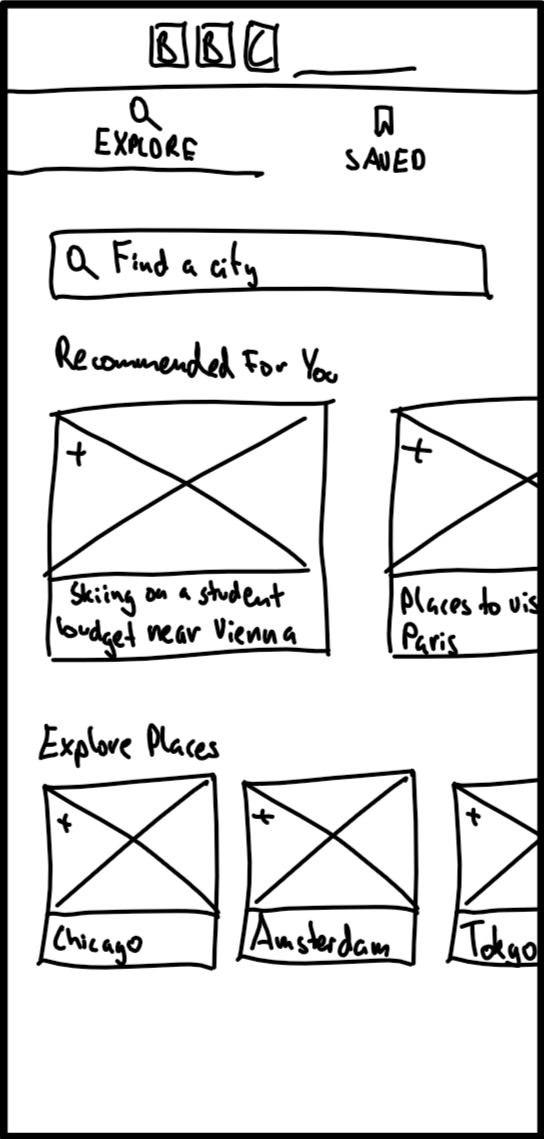 BBC
EXPLORE
SAVED
Find a city
Recommended For You
+
+
Skiing on a student
budget near Vienna
Places to vis
Paris
Explore Places
+
+
+
Chicago
Amsterdam
Tokyo